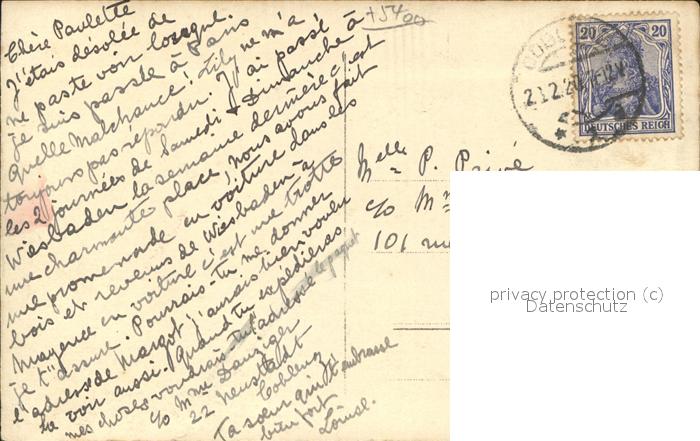 Chère Paulette
J'étais désolée de
ne pas te voir lorsque
je suis passée à Paris
Quelle malchance! Lily ne m'a
toujours pas répondu. J'ai passé
les 2 journées de Samedi & Dimanche à
Wiesbaden la semaine dernière c'est
une charmante place, nous avons fait
une promenade en voiture dans les
bois et revenus de Wiesbaden à
Mayence en voiture c'est une trotte
je t'assure. Pourrais-tu me donner
l'adresse de Margot j'aurais bien voulu
la voir aussi. Quand tu expédieras
mes choses voudrais-tu l'adresse
le paquet
c/o Mme Danziger
22 Neustadt
Coblenz
Ta sœur qui t'embrasse
bien fort
Louise.
+5400
21.2.20
20 20
DEUTSCHES REICH
Melle P. Privé
c/o Mm
101 rue
privacy protection (c)
Datenschutz